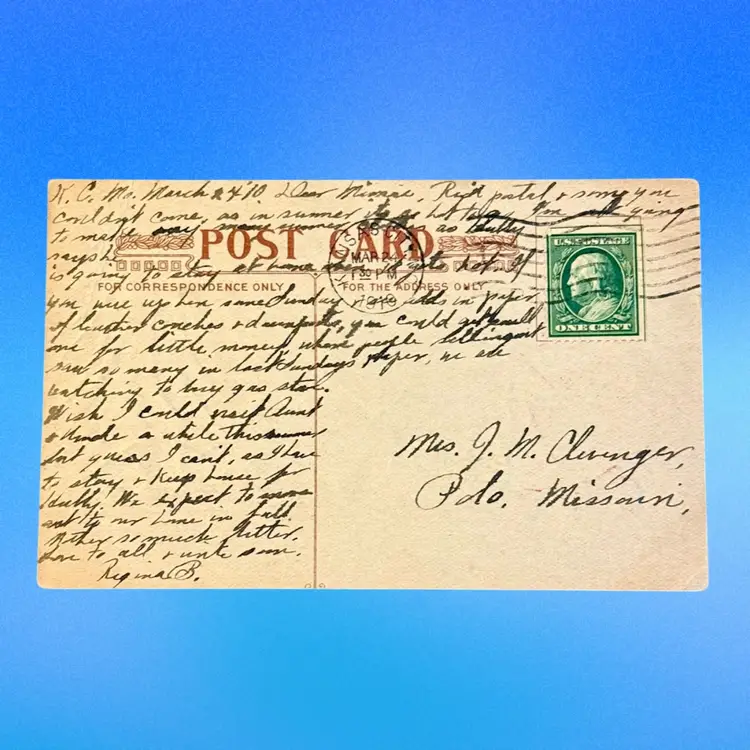 K. C. Mo. March 24 '10. Dear Minnie, Rec'd postal & sorry you
couldn't come, as in summer its so hot to go I'm all going
to make any as
says
POST CARD
MAR 24
1 30 PM
1910
U.S. POSTAGE
ONE CENT
is going to stay at home its hot. If
FOR CORRESPONDENCE ONLY
FOR THE ADDRESS ONLY
you were up here some Sunday ads in paper
of leather couches & you could get
one for little money, where people selling out
saw so many in last Sundays Paper, we are
watching to buy gas stove.
Wish I could visit Aunt
& Uncle a while this summer
dont guess I can't, as I have
to stay & Keep house for
We expect to move
our home in fall
so much better.
Love to all & write soon.
Regina B.
Mrs. J. M. Clevenger,
Polo, Missouri,